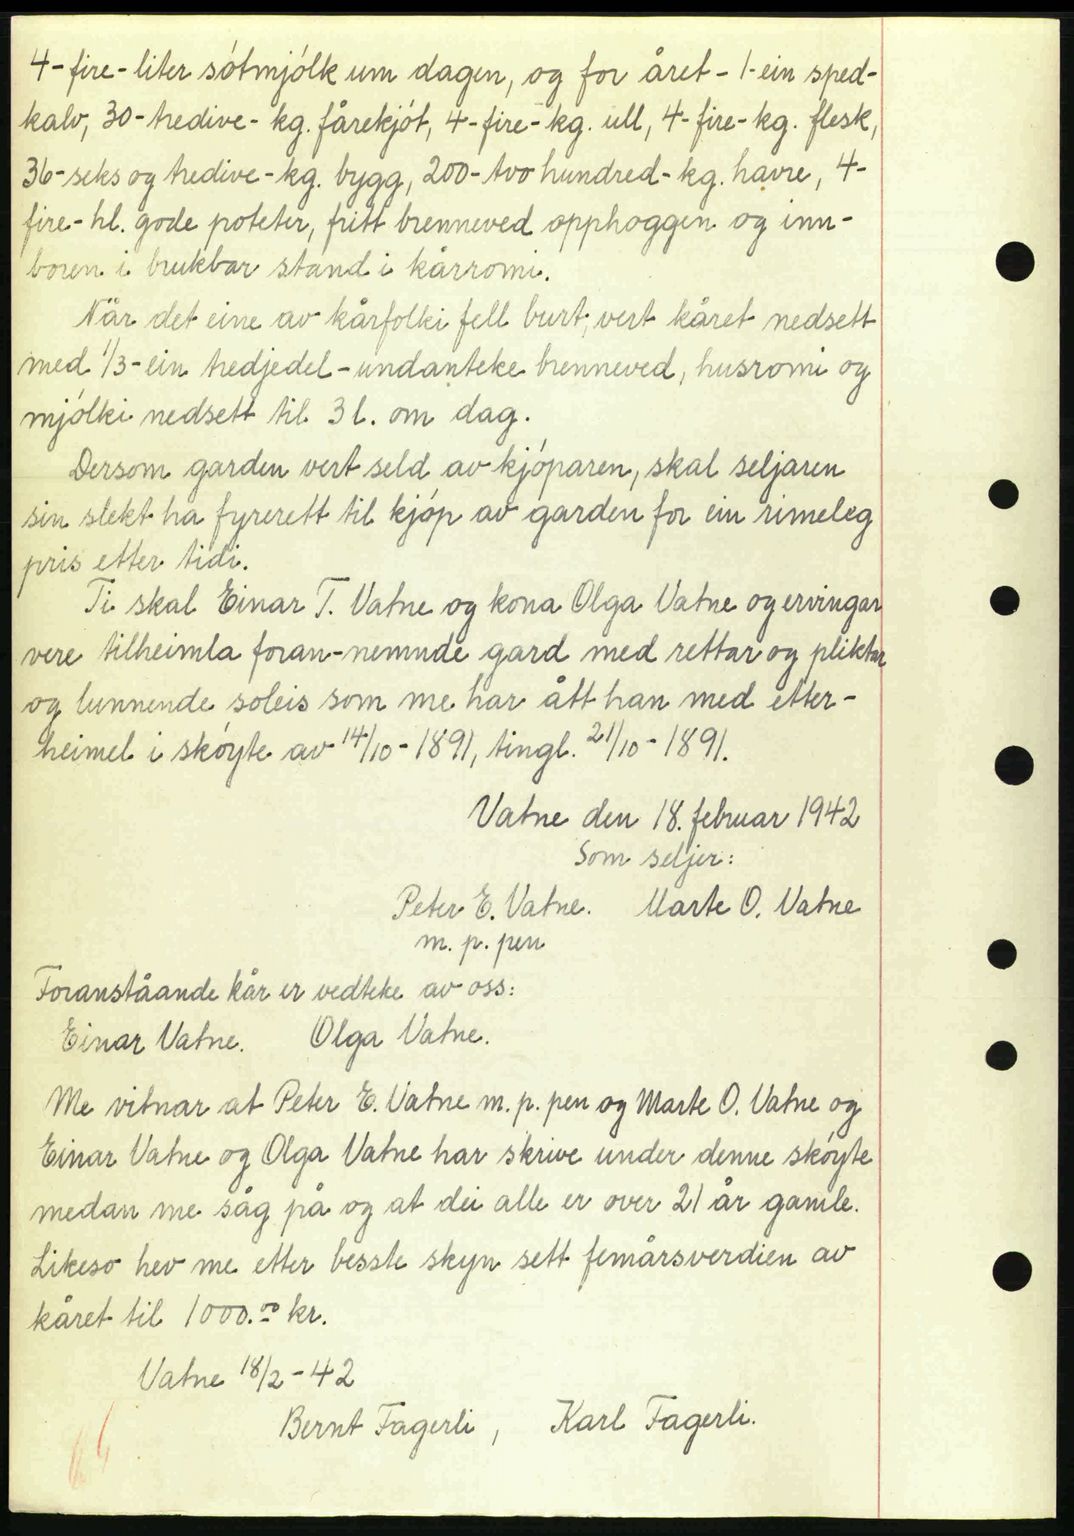 4-fire-liter sótmjólk um dagen, og for året - 1-ein sped-
kalv, 30-tredive-kg. fårekjót, 4-fire-kg. ull, 4-fire-kg. flesk,
36-seks og tredive-kg. bygg, 200-tvo hundred-kg. havre, 4-
fire-hl. gode poteter, fritt brenneved opphoggen og inn-
boren i brukbar stand i kårromi.
Når det eine av kårfolki fell burt, vert kåret nedsett
med 1/3-ein tredjedel-undanteke brenneved, husromi og
mjólki nedsett til 3 l. om dag.
Dersom garden vert seld av kjóparen, skal seljaren
sin slekt ha fyrerett til kjóp av garden for ein rimeleg
pris etter tidi.
Ti skal Einar T. Vatne og kona Olga Vatne og ervingar
vere tilheimla foran-nemnde gard med rettar og pliktar
og lunnende soleis som me har ått han med etter-
heimel i skóyte av 14/10-1891, tingl. 21/10-1891.
Vatne den 18. februar 1942
Som seljer:
Peter E. Vatne. Marte O. Vatne
m. p. pen
Foranståande kår er vedteke av oss:
Einar Vatne. Olga Vatne.
Me vitnar at Peter E. Vatne m. p. pen og Marte O. Vatne og
Einar Vatne og Olga Vatne har skrive under denne skóyte
medan me såg på og at dei alle er over 21 år gamle.
Likeso hev me etter besste skyn sett femårsverdien av
kåret til 1000.00 kr.
Vatne 18/2-42
Bernt Fagerli, Karl Fagerli.